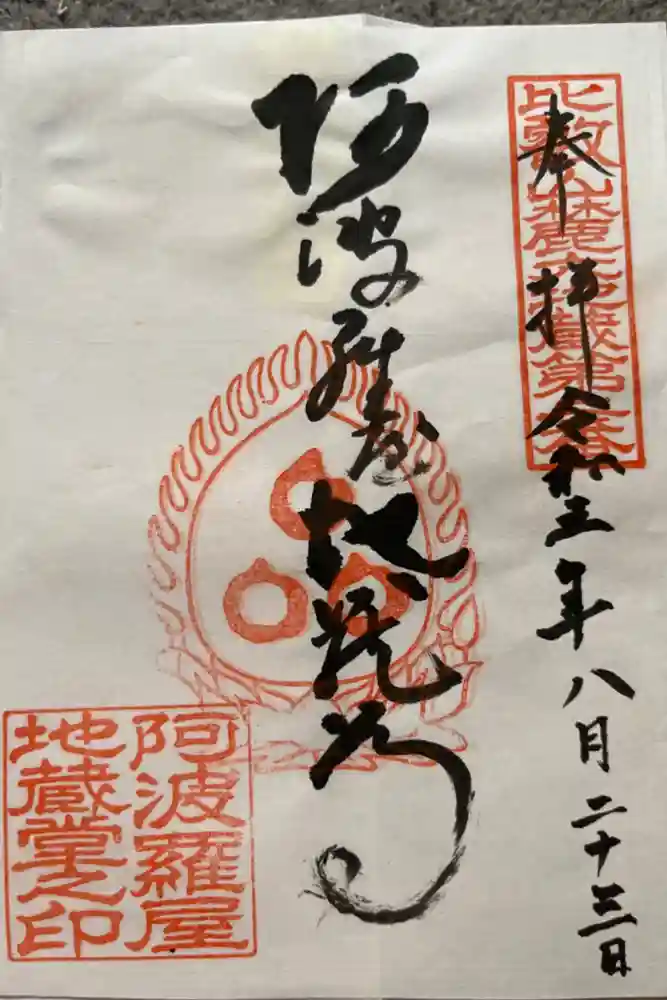 奉拝 令和三年八月二十三日
比叡山麓 地蔵第 番
阿波羅屋地蔵尊
阿波羅屋
地蔵堂之印